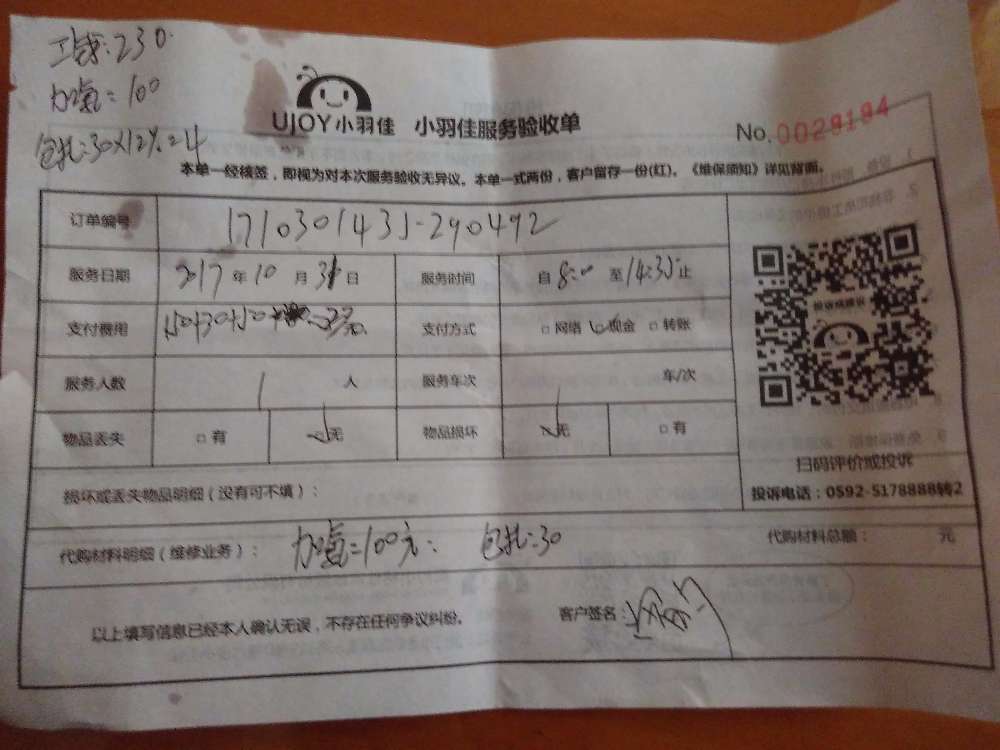 工钱:230
加氧=100
包扎:30×12%=4
UJOY小羽佳 小羽佳服务验收单
No.0029194
本单一经核签，即视为对本次服务验收无异议。本单一式两份，客户留存一份(红)。《维保须知》详见背面。
订单编号 1710301431-290492
服务日期 2017年10月31日 服务时间 自8:00至14:35止
支付费用 150+30+50 支付方式 □网络 □现金 □转账
服务人数 1人 服务车次 车/次
物品丢失 □有 □无 物品损坏 □无 □有
扫码评价或投诉
投诉电话：0592-5178888转2
损坏或丢失物品明细（没有可不填）：
代购材料明细（维修业务）： 加氧=100元: 包扎:30 代购材料总额： 元
以上填写信息已经本人确认无误，不存在任何争议纠纷。 客户签名: